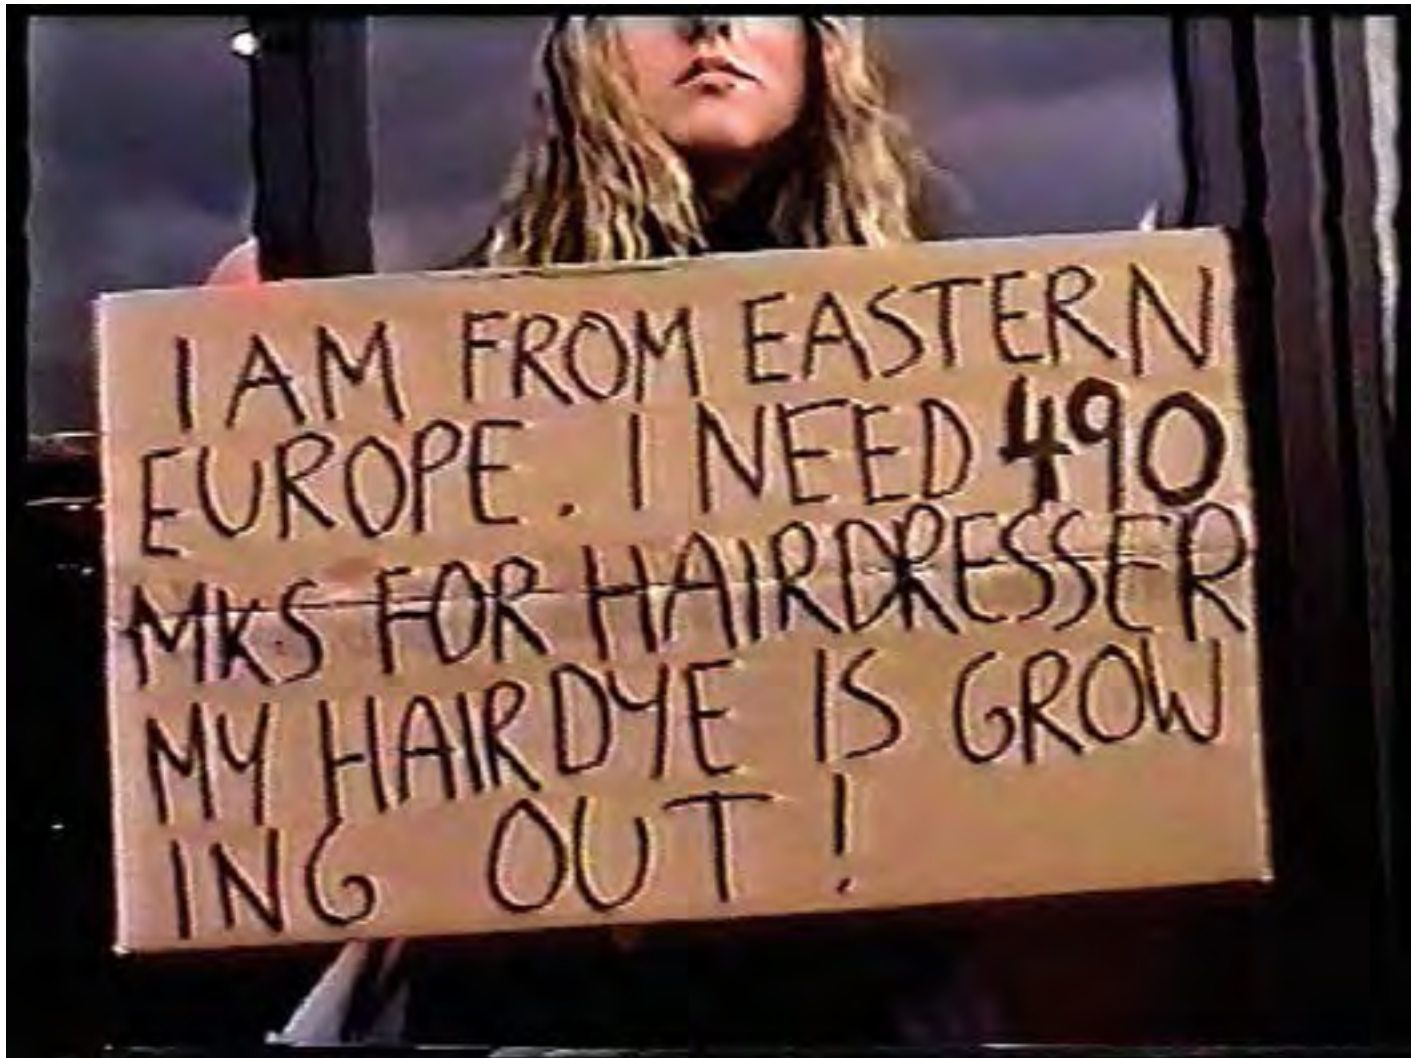 I AM FROM EASTERN
EUROPE. I NEED 490
MKS FOR HAIRDRESSER
MY HAIRDYE IS GROW
ING OUT!